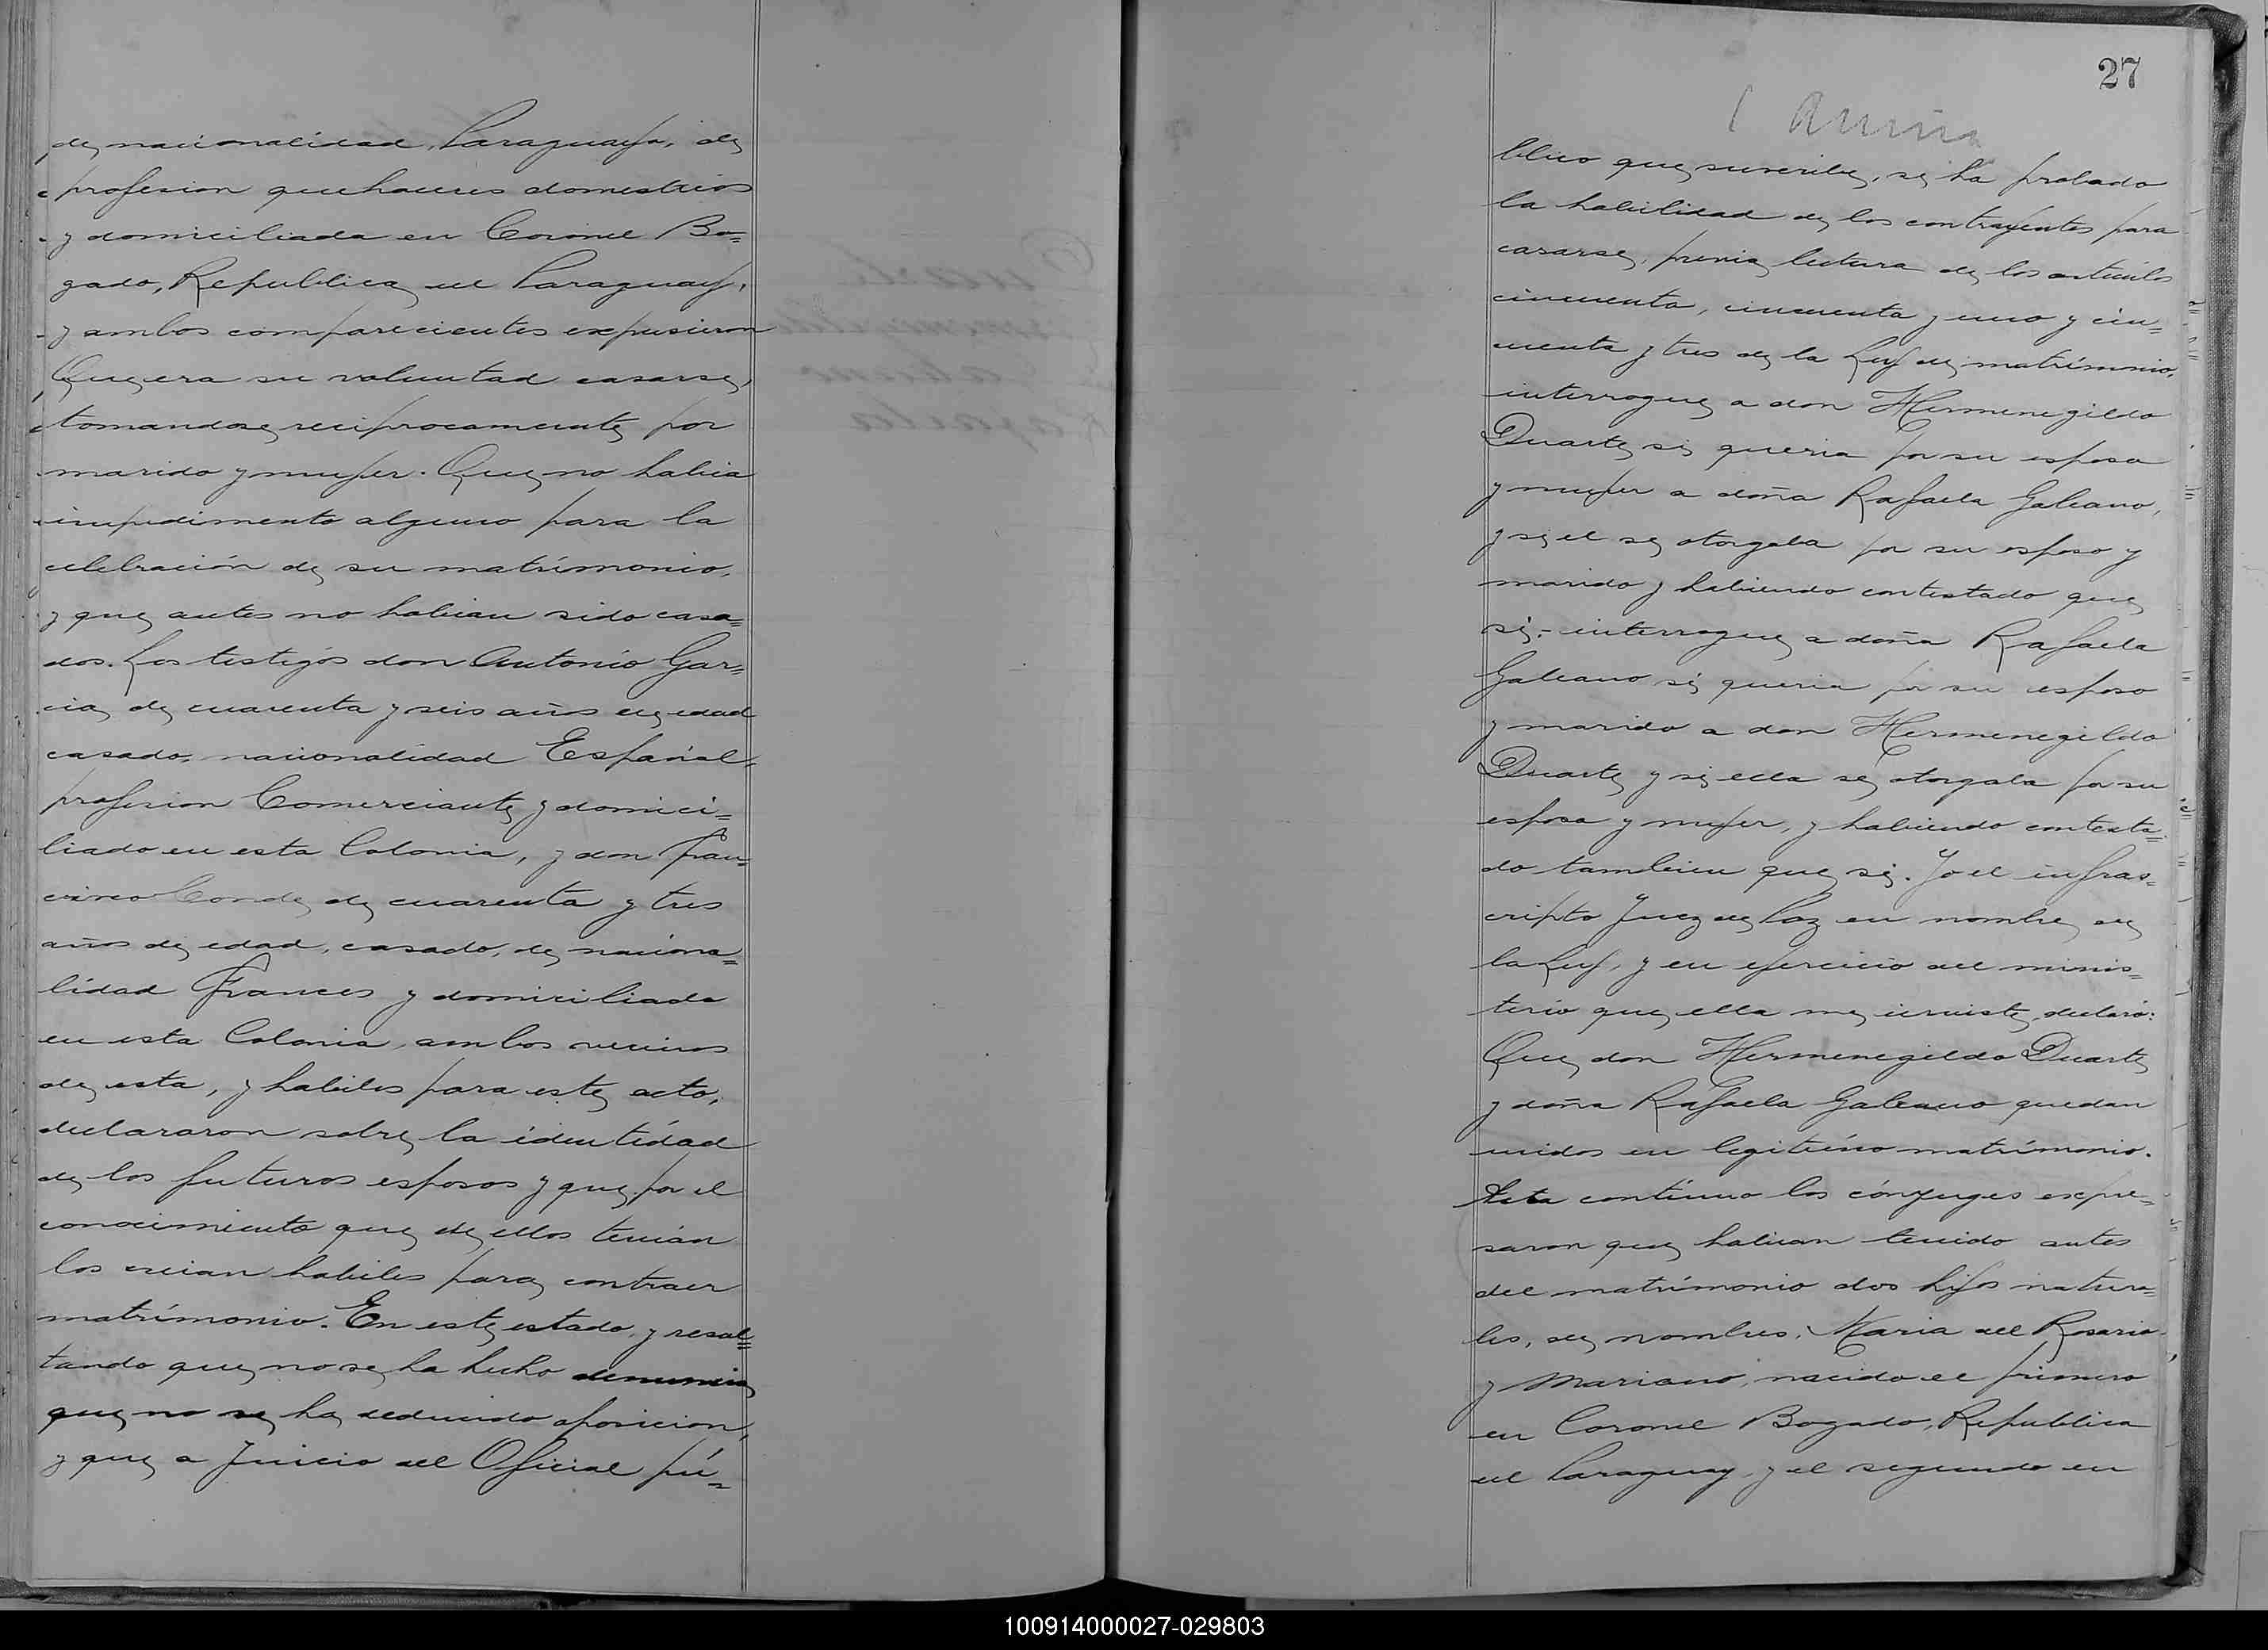 de nacionalidad, Paraguaya, de
profesion quehaceres domesticos
y domiciliada en Coronel Bo=
gado, Republica del Paraguay,
y ambos comparecientes expusieron
Que era su voluntad casarse,
tomandose reciprocamente por
marido y mujer. Que no habia
impedimento alguno para la
celebración de su matrimonio,
y que antes no habian sido casa=
dos. Los testigos don Antonio Gar=
cia, de cuarenta y seis años de edad
casado, nacionalidad Español,
profesion Comerciante y domici=
liado en esta Colonia, y don Fran=
cisco Conde de cuarenta y tres
años de edad, casado, de naciona=
lidad Frances y domiciliado
en esta Colonia, ambos vecinos
de esta, y habiles para este acto,
declararon sobre la identidad
de los futuros esposos y que por el
conocimiento que de ellos tenian
los creian habiles para contraer
matrimonio. En este estado, y resul=
tando que no se ha hecho denuncia
que no se ha deducido oposicion,
y que a Juicio del Oficial pú=
27
blico que suscribe, se ha probado
la habilidad de los contrayentes para
casarse, previa lectura de los articulos
cincuenta, cincuenta y uno y cin=
cuenta y tres de la Ley de matrimonio,
interrogue a don Hermenegildo
Duarte si queria por su esposa
y mujer a doña Rafaela Galeano,
y si el se otorgaba por su esposo y
marido y habiendo contestado que
si,- interrogue a doña Rafaela
Galeano si queria por su esposo
y marido a don Hermenegildo
Duarte y si ella se otorgaba por su
esposa y mujer, y habiendo contesta=
do tambien que si. Yo el infras=
cripto Juez de Paz en nombre de
la Ley, y en ejercicio del minis=
terio que ella me inviste, declaró:
Que don Hermenegildo Duarte
y doña Rafaela Galeano quedan
unidos en legitimo matrimonio.
continuo los cónyuges expre=
saron que habian tenido antes
del matrimonio dos hijos natura=
les, de nombres: Maria del Rosario
y Mariano, nacido el primero
en Coronel Bogado, Republica
del Paraguay, y el segundo en
100914000027-029803